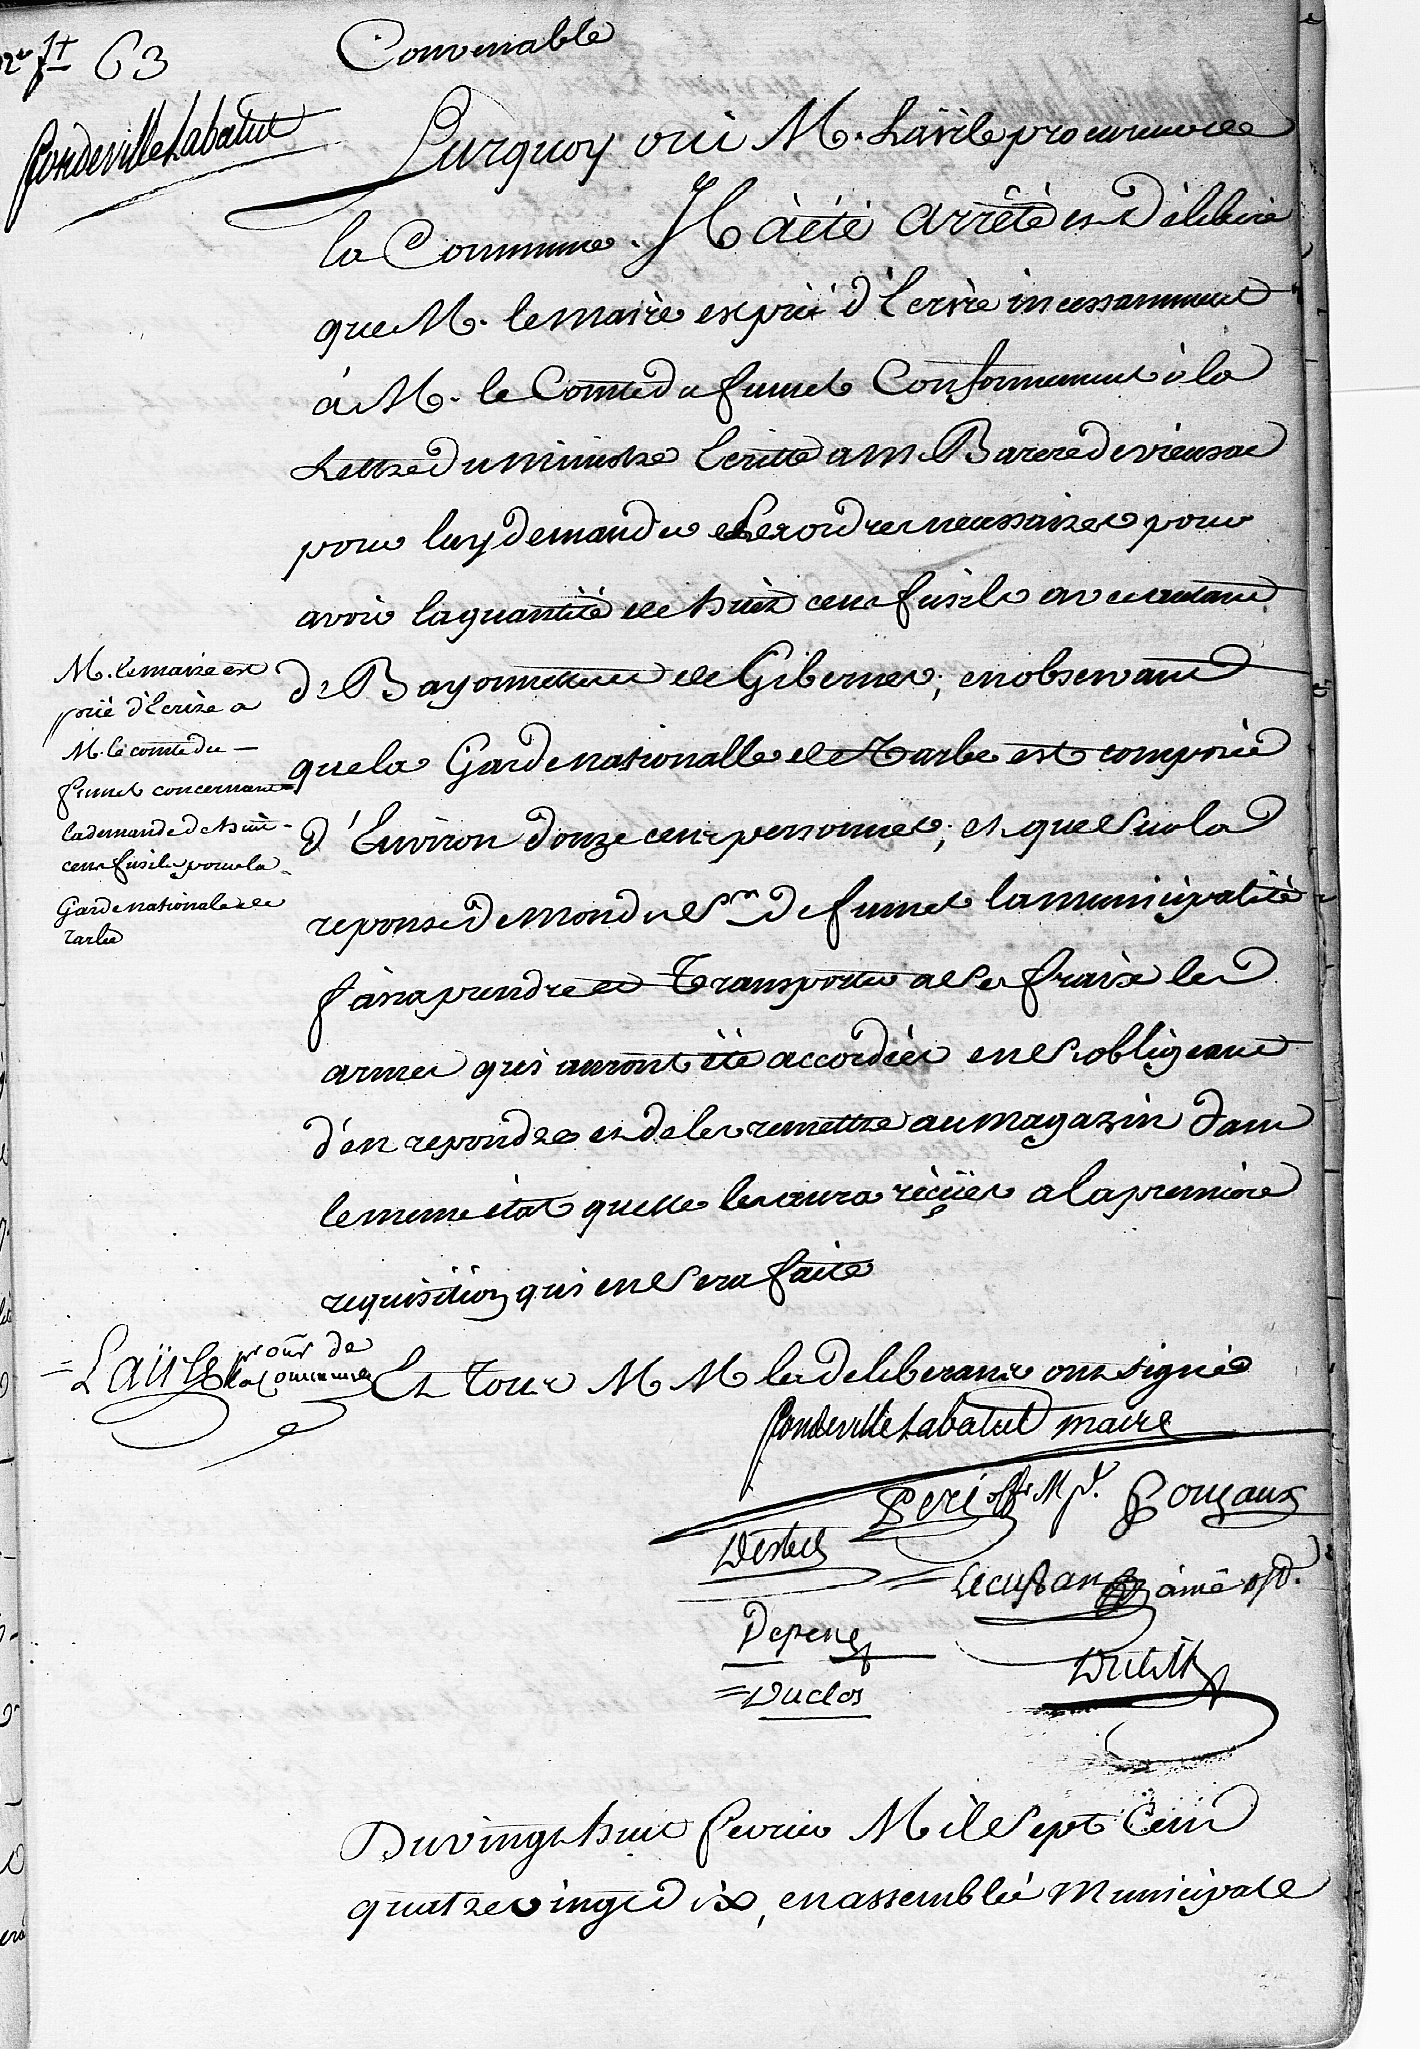 63
Convenable
Pondeville Labatut
Surquoy oui M. Laïrle procureur de
la Commune. Il à été arrêté et Délibéré
que M. le maire est prié d'Ecrire incessamment
à M. le Comte du fumel Conformement à la
Lettre du ministre Ecritte a M. Barere de vieusac
pour luy demander les ordres necessaires pour
avoir la quantité de huit cens fusils avec autant
de Bayonnettes et de Gibernes; en observant
que la Garde nationalle de Tarbe est composée
d'Environ douze cens personnes; et que sur la
reponse de mondit Sr. de fumel la municipalité
faira prendre et Transporter a ses fraix les
armes qui auront été accordées en s'obligeant
d'en repondre et de les remettre au magazin dans
le meme état quelle les aura reçües a la premiere
requisition qui en sera faite
M. le maire est
prié d'Ecrire a
M. le comte du
fumel concernant
la demande de huit
cens fusils pour la
Garde nationale de
Tarbe
Laïrle procur de
la Commune
Et tous M M les deliberans ont signé
Pondeville Labatut maire
Peri offr. Mpl. Gougaux
Destech
Lecussan ainé
Depene
Duclos
Du vingt huit fevrier Mil Sept Cens
quatre vingt dix, en assemblée Municipale